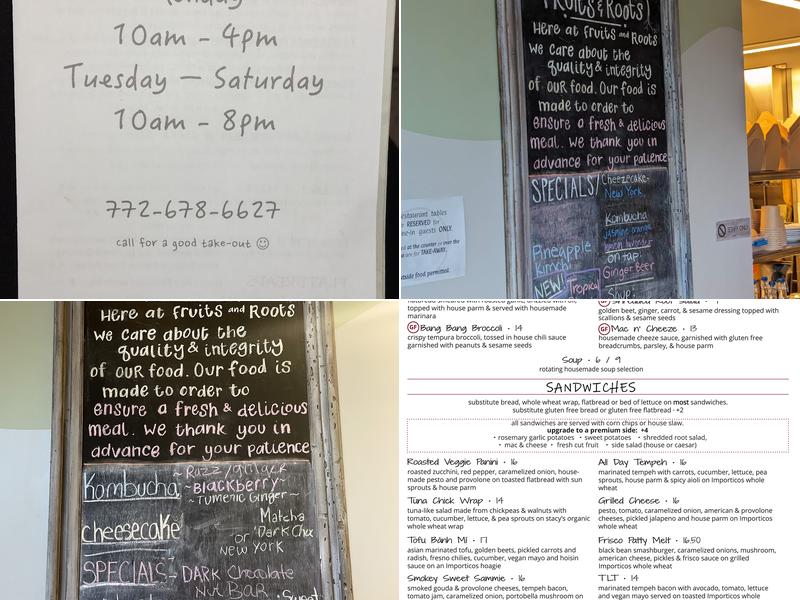 10am - 4pm
Tuesday — Saturday
10am - 8pm
772-678-6627
call for a good take-out ☺
FRUITS & ROOTS
Here at fruits and Roots
we care about the
quality & integrity
of our food. Our food is
made to order to
ensure a fresh & delicious
meal. We thank you in
advance for your patience
SPECIALS/
Cheezecake-
New York
Kombucha
Jasmine orange
lemon lavender
on tap:
Ginger Beer
Pineapple
Kimchi
NEW
Tropical
Soup:
restaurant tables
RESERVED for
guests ONLY.
at the counter or over the
are for TAKE-AWAY.
outside food permitted.
STAFF ONLY
Here at fruits and Roots
we care about the
quality & integrity
of our food. Our food is
made to order to
ensure a fresh & delicious
meal. We thank you in
advance for your patience
Kombucha
~BLackberry~
~Tumeric Ginger~
cheesecake
Matcha
or Dark Choc
New York
SPECIALS-
DARK Chocolate
Nut BAR
Sweet
flatbread smeared with roasted garlic, drizzled with
topped with house parm & served with housemade
marinara
golden beet, ginger, carrot, & sesame dressing topped with
scallions & sesame seeds
GF Bang Bang Broccoli · 14
crispy tempura broccoli, tossed in house chili sauce
garnished with peanuts & sesame seeds
GF Mac n' Cheeze · 13
housemade cheeze sauce, garnished with gluten free
breadcrumbs, parsley, & house parm
Soup · 6 / 9
rotating housemade soup selection
SANDWICHES
substitute bread, whole wheat wrap, flatbread or bed of lettuce on most sandwiches.
substitute gluten free bread or gluten free flatbread · +2
all sandwiches are served with corn chips or house slaw.
upgrade to a premium side: +4
• rosemary garlic potatoes • sweet potatoes • shredded root salad,
• mac & cheese • fresh cut fruit • side salad (house or caesar)
Roasted Veggie Panini · 16
roasted zucchini, red pepper, caramelized onion, house-
made pesto and provolone on toasted flatbread with sun
sprouts & house parm
All Day Tempeh · 16
marinated tempeh with carrots, cucumber, lettuce, pea
sprouts, house parm & spicy aioli on Importicos whole
wheat
Tuna Chick Wrap · 14
tuna-like salad made from chickpeas & walnuts with
tomato, cucumber, lettuce, & pea sprouts on stacy's organic
whole wheat wrap
Grilled Cheese · 16
pesto, tomato, caramelized onion, american & provolone
cheeses, pickled jalapeno and house parm on Importicos
whole wheat
Tofu Bánh Mì · 17
asian marinated tofu, golden beets, pickled carrots and
radish, fresno chilies, cucumber, vegan mayo and hoisin
sauce on an Importicos hoagie
Frisco Patty Melt · 16.50
black bean smashburger, caramelized onions, mushroom,
american cheese, pickles & frisco sauce on grilled
Importicos whole wheat
Smokey Sweet Sammie · 16
smoked gouda & provolone cheeses, tempeh bacon,
tomato jam, caramelized onion, portobella mushroom on
TLT · 14
marinated tempeh bacon with avocado, tomato, lettuce
and vegan mayo served on toasted Importicos whole wheat